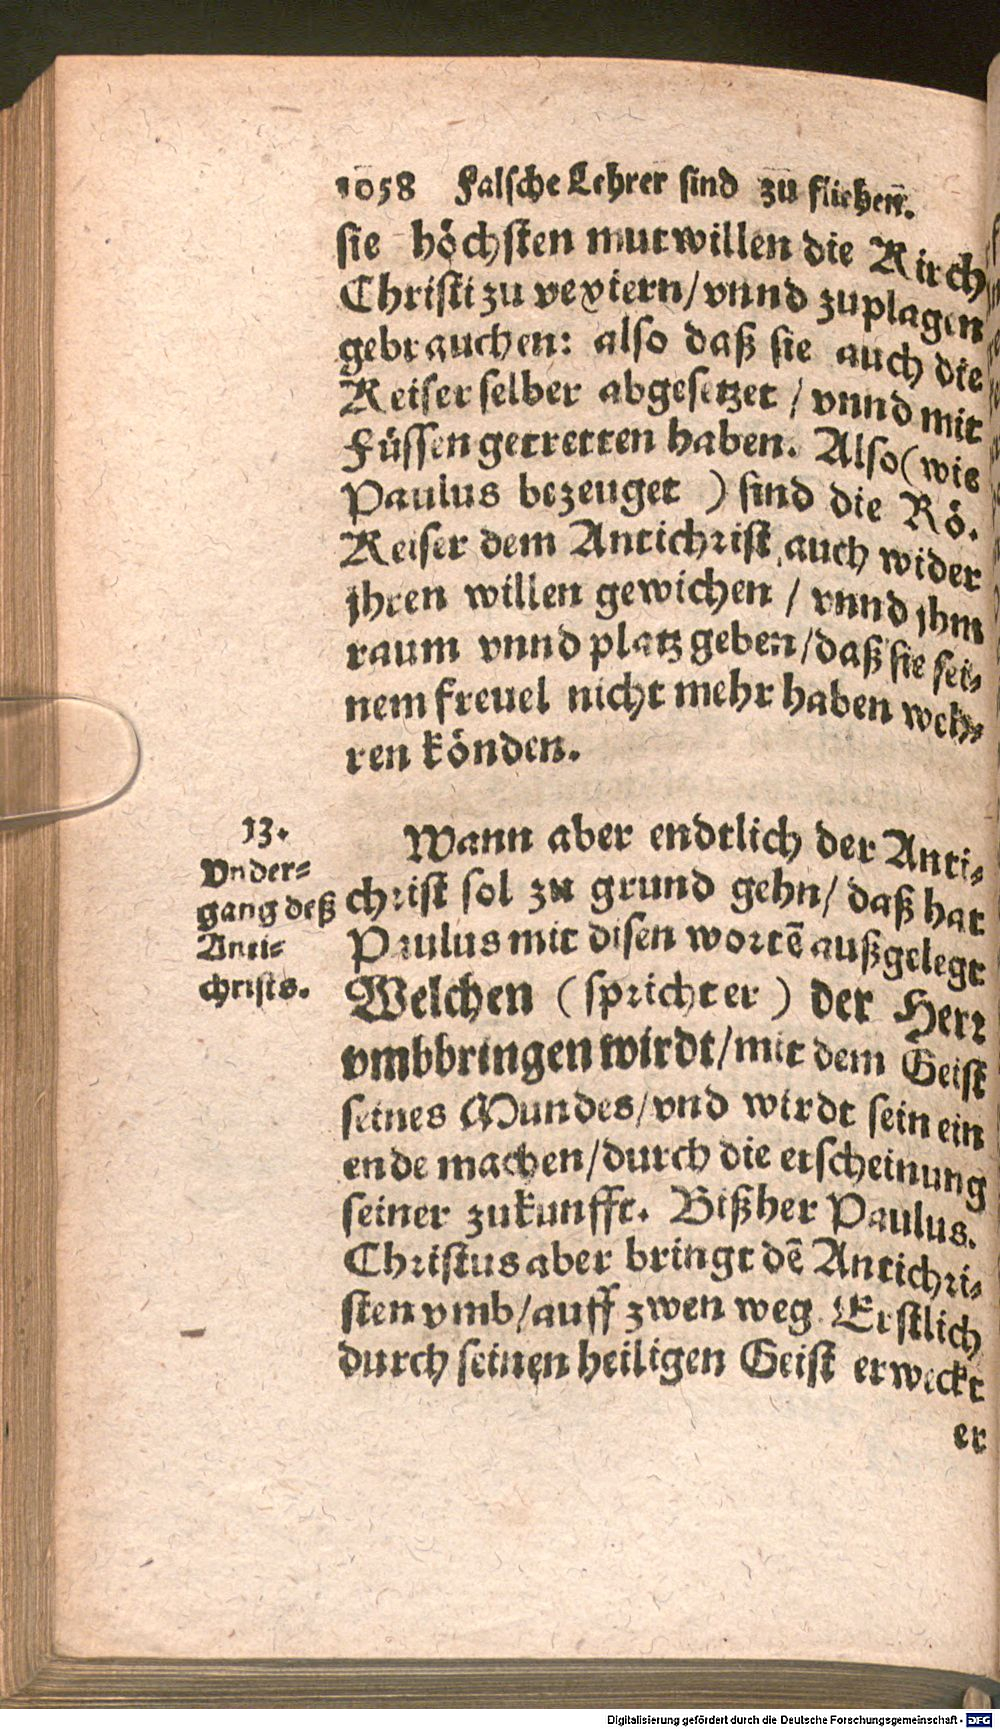 1058 Falsche Lehrer sind zu fliehen̄.
sie höchsten mutwillen die Kirch
Christi zu vexiern/vnnd zuplagen
gebrauchen: also daß sie auch die
Keiser selber abgesetzet / vnnd mit
Füssen getretten haben. Also (wie
Paulus bezeuget ) sind die Rö.
Keiser dem Antichrist auch wider
jhren willen gewichen / vnnd jhm
raum vnnd platz geben/daß sie sei⸗
nem freuel nicht mehr haben weh⸗
ren könden.
13.
Vnder⸗
gang deß
Anti⸗
christs.
Wann aber endtlich der Anti⸗
christ sol zu grund gehn/ daß hat
Paulus mit disen wortē außgelegt
Welchen (spricht er ) der Herr
vmbbringen wirdt/mit dem Geist
seines Mundes/vnd wirdt sein ein
ende machen/durch die erscheinung
seiner zukunfft. Bißher Paulus.
Christus aber bringt dē Antichri⸗
sten vmb/auff zwen weg. Erstlich
durch seinen heiligen Geist erweckt
er
Digitalisierung gefördert durch die Deutsche Forschungsgemeinschaft - DFG